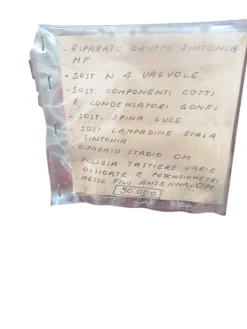 - RIPARATO GRUPPO SINTONIA
MF
- SOST. N. 4 VALVOLE
- SOST. COMPONENTI COTTI
E CONDENSATORI GONFI
- SOST. SPINA LUCE
- SOST. LAMPADINE SCALA
SINTONIA
- RIPARATO STADIO OM
- PULIZIA TASTIERE VARIE
OSSIDATE E POTENZIOMETRI
- MESSO FILO ANTENNA OM
90.000